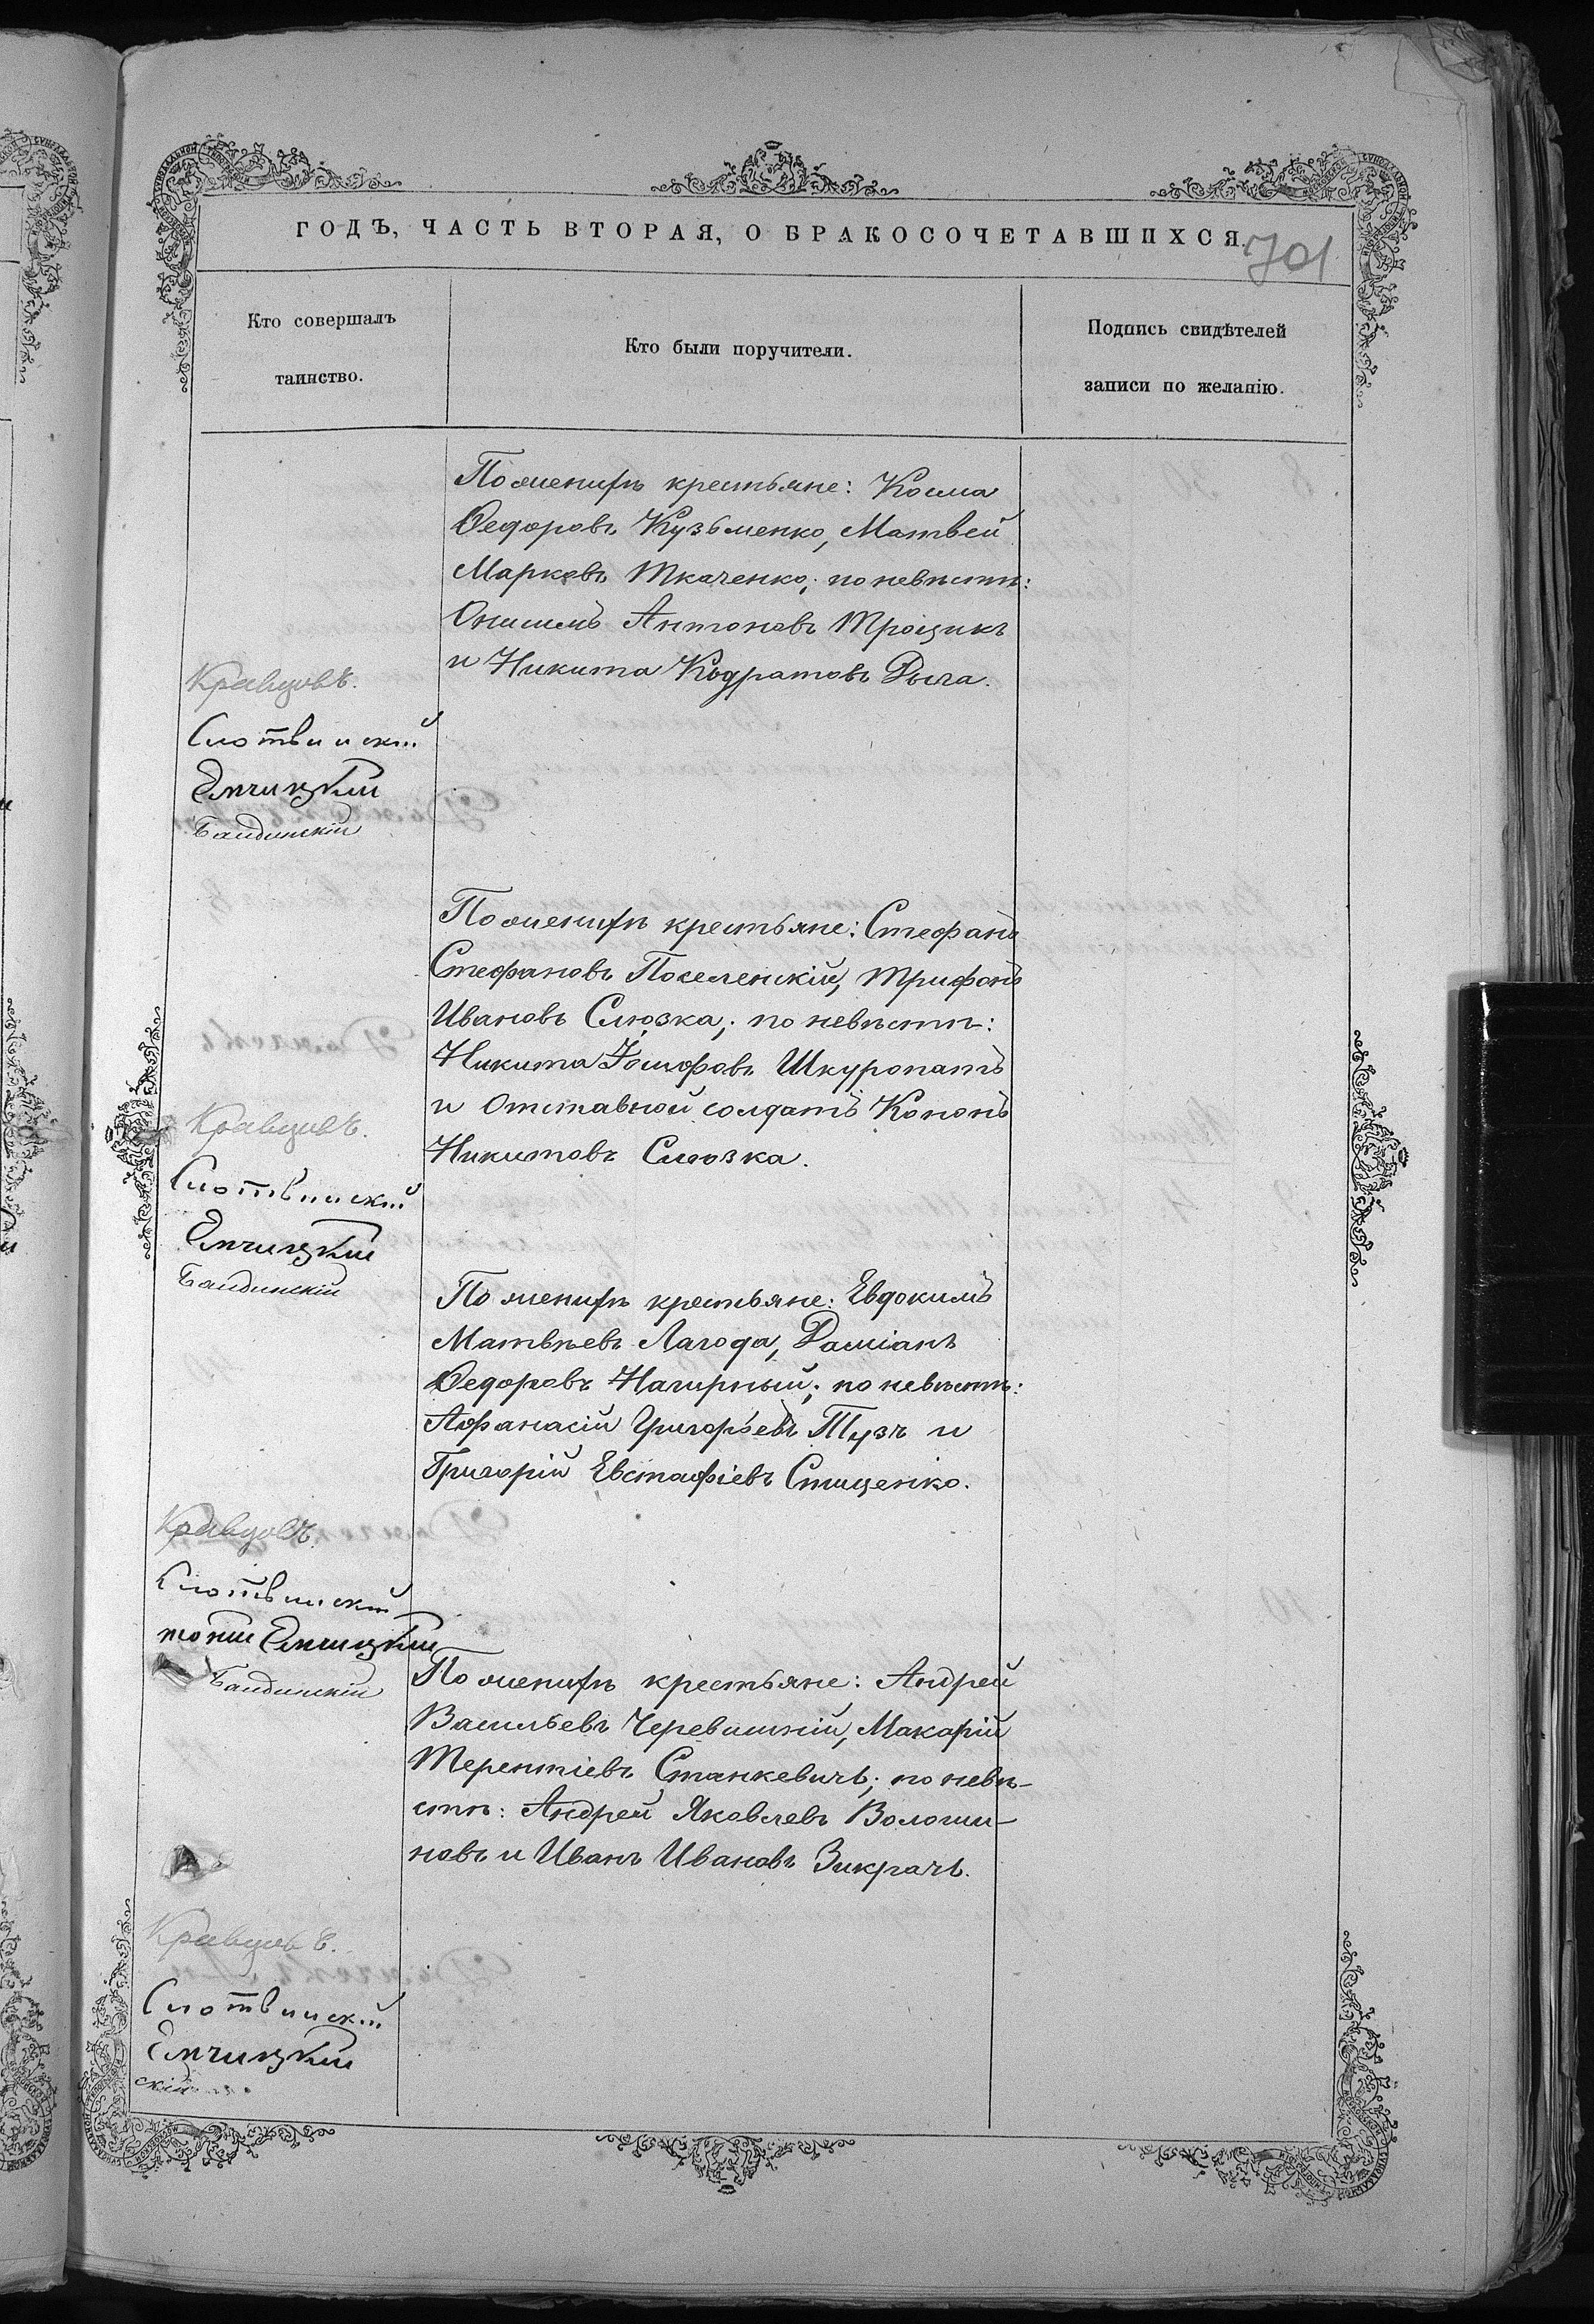 ГОДЪ, ЧАСТЬ ВТОРАЯ, О БРАКОСОЧЕТАВШИХСЯ.
701
Кто совершалъ
таинство.
Кто были поручители.
Подпись свидѣтелей
записи по желанію.
По женихѣ крестьяне: Косма
Ѳедоровъ Кузьменко, Матвей
Марковъ Ткаченко; по невѣстѣ:
Онисимъ Антоновъ Троцикъ
и Никита Кодратовъ Рыча.
Кравцовъ.
Слотвинскій
Емчицкій
По женихѣ крестьяне: Стефанъ
Стефановъ Поселенскій, Трифонъ
Ивановъ Слюзка; по невѣстѣ:
Никита Іосифовъ Шкуропатъ
и Отставной солдатъ Кононъ
Никитовъ Слюзка.
Кравцовъ.
Слотвинскій
Емчицкій
По женихѣ крестьяне: Евдокимъ
Матвѣевъ Лагода, Даміанъ
Ѳедоровъ Нагирный; по невѣстѣ:
Афанасій Григорьевъ Тузъ и
Григорій Евстафіевъ Стиценко.
Кравцовъ.
Слотвинскій
Емчицкій
По женихѣ крестьяне: Андрей
Васильевъ Черевишній, Макарій
Терентіевъ Станкевичъ; по невѣ-
стѣ: Андрей Яковлевъ Волоши-
новъ и Иванъ Ивановъ Зикрачъ.
Кравцовъ.
Слотвинскій
Емчицкій
скій